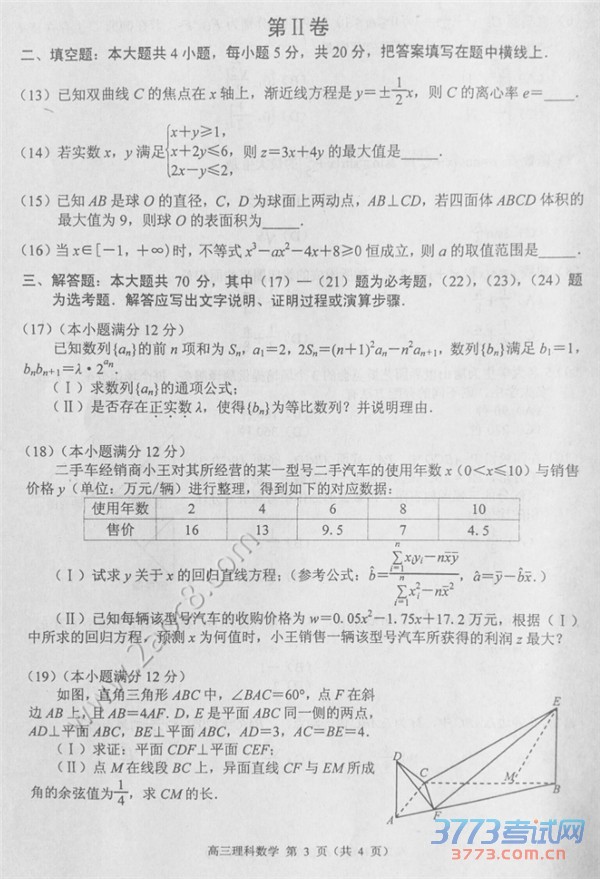 第Ⅱ卷
二、填空题：本大题共4小题，每小题5分，共20分，把答案填写在题中横线上．
（13）已知双曲线C的焦点在x轴上，渐近线方程是y=±1/2x，则C的离心率e=____．
（14）若实数x，y满足{x+y≥1，x+2y≤6，2x-y≤2，则z=3x+4y的最大值是____．
（15）已知AB是球O的直径，C，D为球面上两动点，AB⊥CD，若四面体ABCD体积的
最大值为9，则球O的表面积为____．
（16）当x∈[-1，+∞)时，不等式x³-ax²-4x+8≥0恒成立，则a的取值范围是____．
三、解答题：本大题共70分，其中（17）—（21）题为必考题，（22），（23），（24）题
为选考题．解答应写出文字说明、证明过程或演算步骤．
（17）（本小题满分12分）
已知数列{aₙ}的前n项和为Sₙ，a₁=2，2Sₙ=(n+1)²aₙ-n²aₙ₊₁，数列{bₙ}满足b₁=1，
bₙbₙ₊₁=λ·2^{aₙ}．
（Ⅰ）求数列{aₙ}的通项公式；
（Ⅱ）是否存在正实数λ，使得{bₙ}为等比数列？并说明理由．
（18）（本小题满分12分）
二手车经销商小王对其所经营的某一型号二手汽车的使用年数x（0<x≤10）与销售
价格y（单位：万元/辆）进行整理，得到如下的对应数据：
使用年数 2 4 6 8 10
售价 16 13 9.5 7 4.5
（Ⅰ）试求y关于x的回归直线方程；（参考公式：b̂=(∑ᵢ₌₁ⁿxᵢyᵢ-nx̄ȳ)/(∑ᵢ₌₁ⁿxᵢ²-nx̄²)，â=ȳ-b̂x̄．）
（Ⅱ）已知每辆该型号汽车的收购价格为w=0.05x²-1.75x+17.2万元，根据（Ⅰ）
中所求的回归方程，预测x为何值时，小王销售一辆该型号汽车所获得的利润z最大？
（19）（本小题满分12分）
如图，直角三角形ABC中，∠BAC=60°，点F在斜
边AB上，且AB=4AF．D，E是平面ABC同一侧的两点，
AD⊥平面ABC，BE⊥平面ABC，AD=3，AC=BE=4．
（Ⅰ）求证：平面CDF⊥平面CEF；
（Ⅱ）点M在线段BC上，异面直线CF与EM所成
角的余弦值为1/4，求CM的长．
E
D
C
M
B
A
F
高三理科数学 第3页（共4页）
3773考试网
www.3773.com.cn